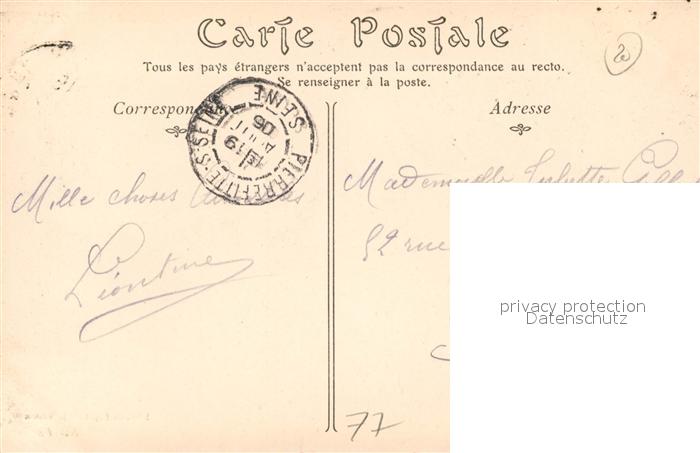 Carte Postale
Tous les pays étrangers n'acceptent pas la correspondance au recto.
Se renseigner à la poste.
Correspondance
Adresse
PIERREFITTE-S-SEINE
SEINE
06
Mille choses
Mademoiselle Juliette
52 rue
Léontine
privacy protection
Datenschutz
77